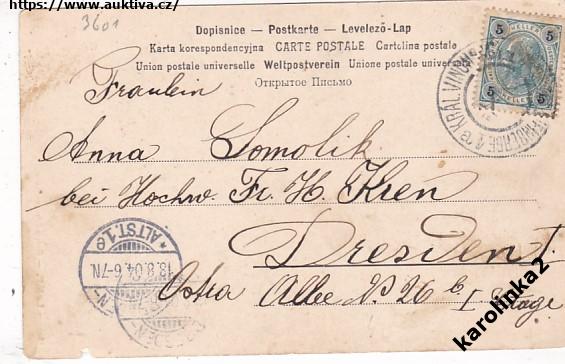 https://www.auktiva.cz/
3601
Dopisnice — Postkarte — Levelező-Lap
Karta korespondencyjna CARTE POSTALE Cartolina postale
Union postale universelle Weltpostverein Unione postale universale
Открытое Письмо
5 5
HELLER
5 5
KRÁL. VINOHRADY
Fräulein
Anna Somolik
bei Hochw. Fr. H. Kren
Dresden I.
Ostra Allee No 26 b
I. Etage
* ALTST. 1. e
13.8.04. 6-7N.
DRESDEN
karolinka2